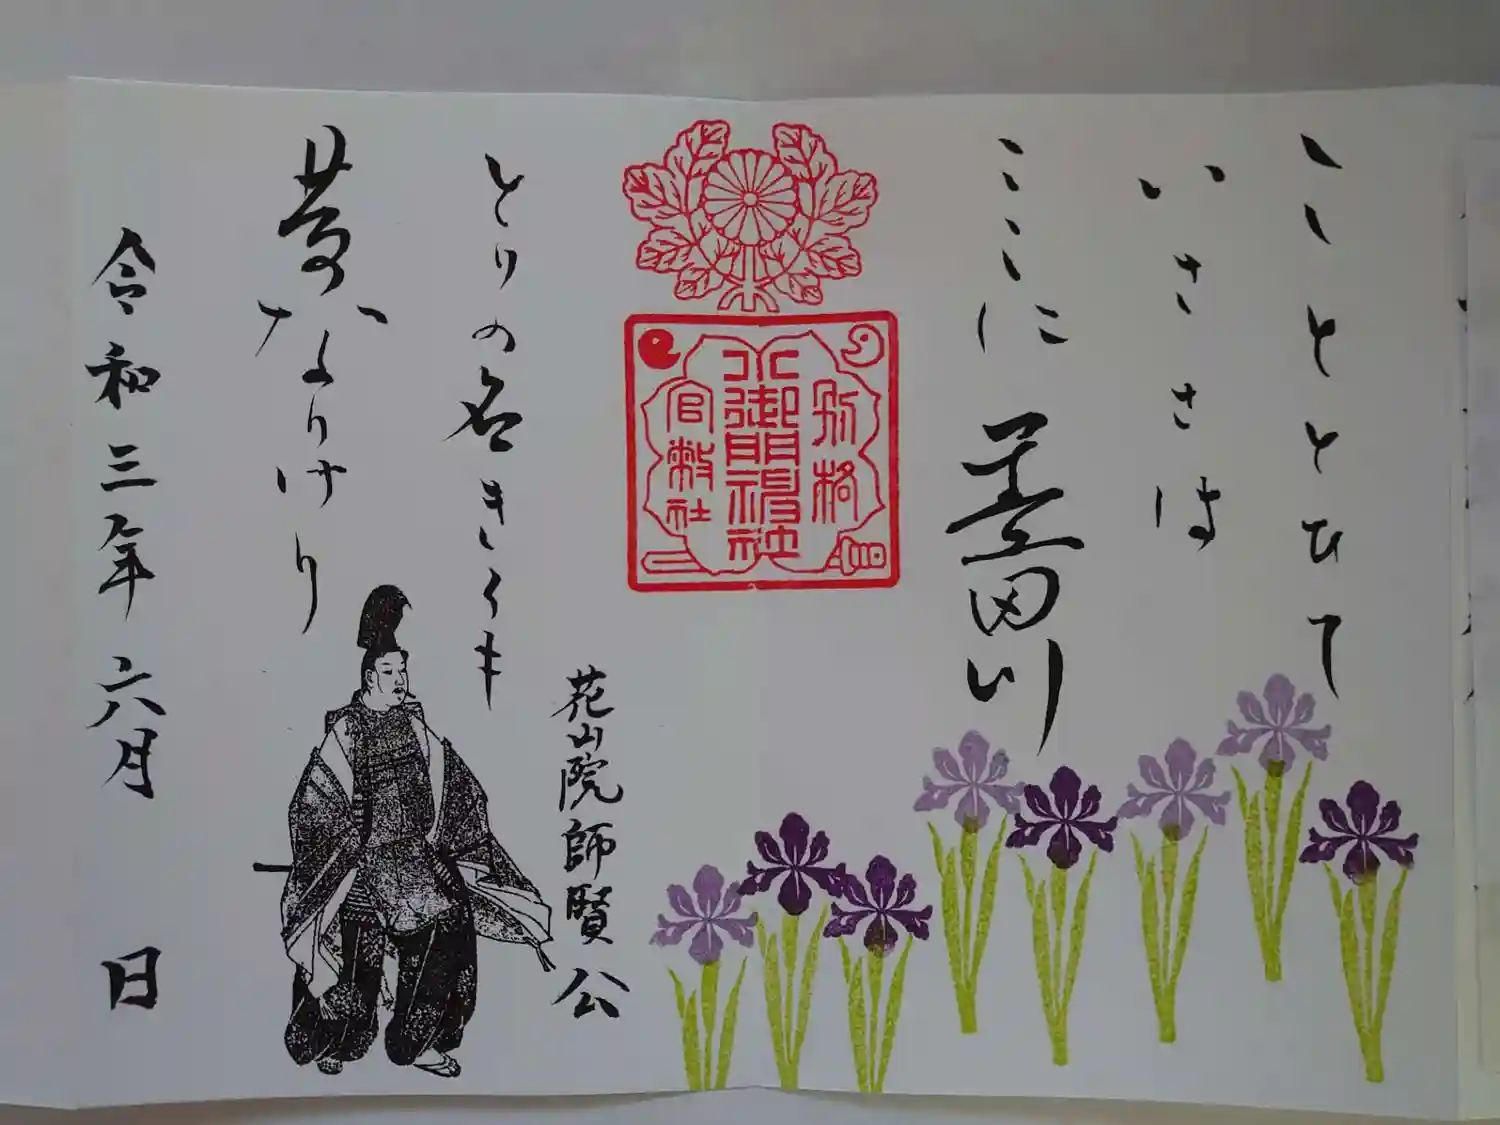 こととひて
いささは
ここに墨田川
別格
小御門神社
官幣社
とりの名きくも
昔なりけり
花山院師賢公
令和三年六月 日